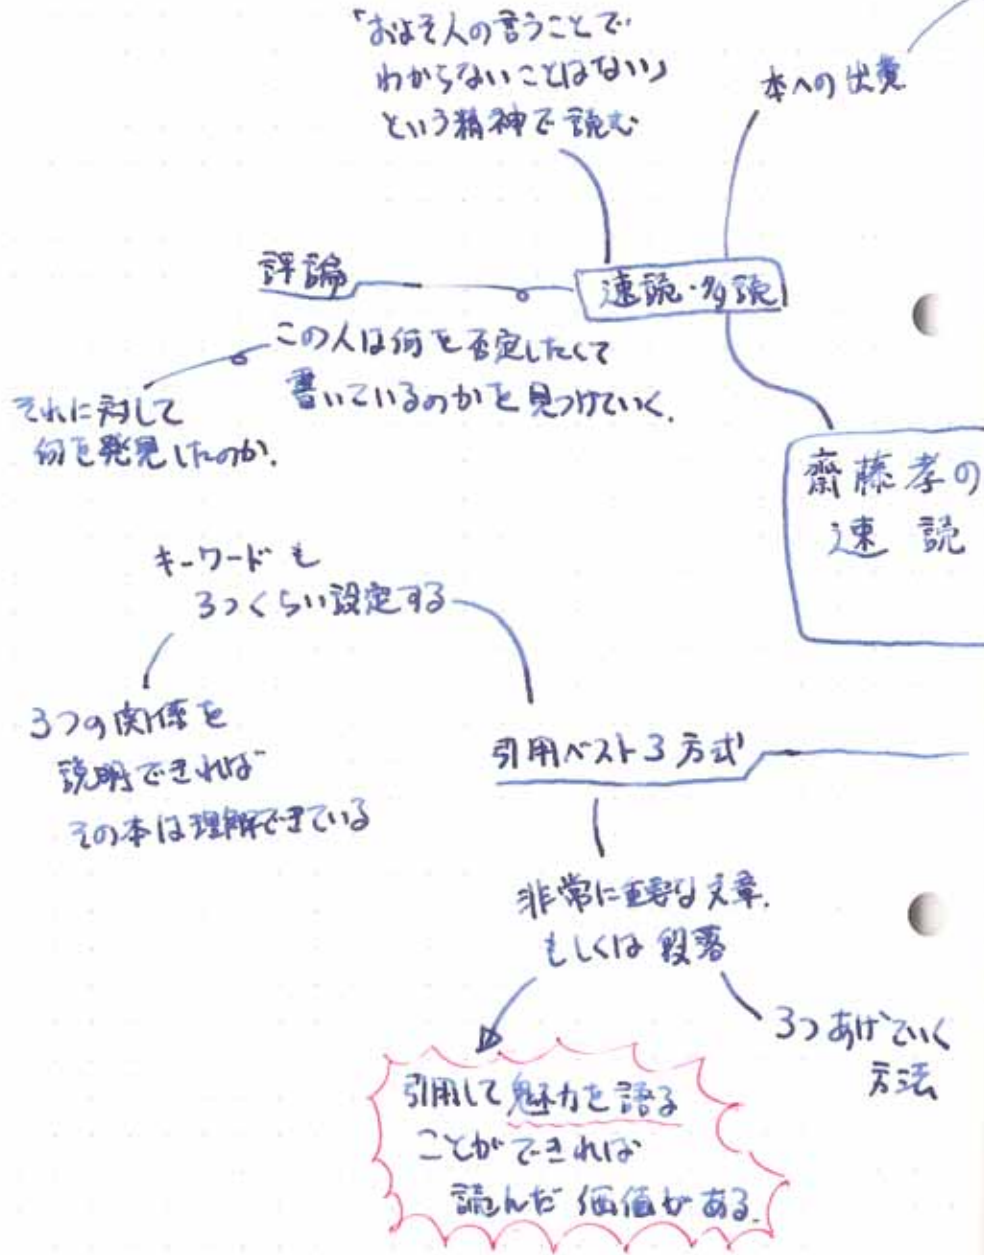 「およそ人の言うことで
わからないことはない」
という精神で読む
本への出費
評論
速読・多読
この人は何を否定したくて
書いているのかを見つけていく.
それに対して
何を発見したのか.
齋藤孝の
速読
キーワードも
3つくらい設定する
3つの関係を
説明できれば
その本は理解できている
引用ベスト3方式
非常に重要な文章.
もしくは段落
3つあげていく
方法
引用して魅力を語る
ことができれば
読んだ価値がある.